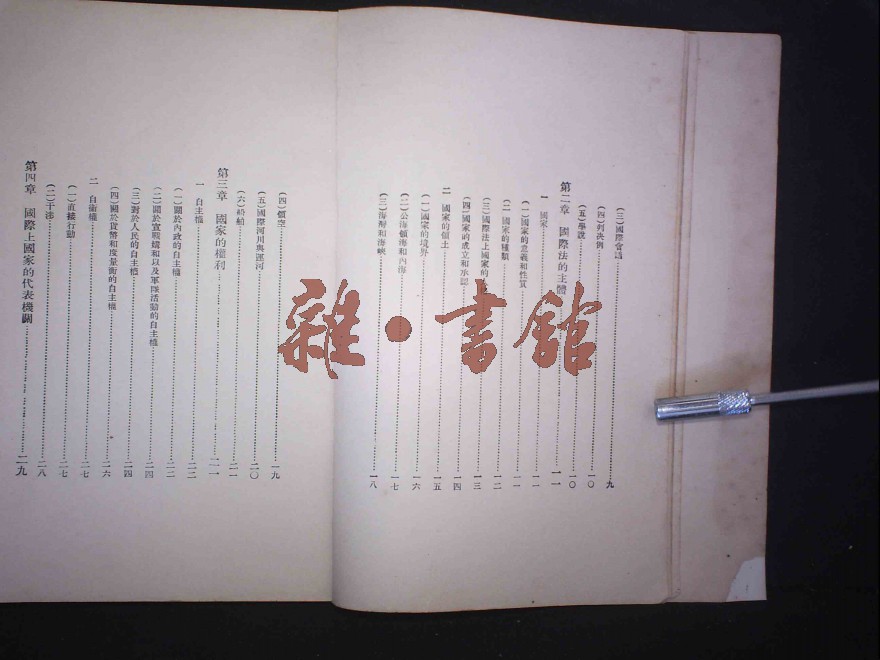 (三)國際會議……九
(四)判決例……一〇
(五)學說……一〇
第二章 國際法的主體……一一
一 國家……一一
(一)國家的意義和性質……一一
(二)國家的種類……一二
(三)國際法上國家的……一三
(四)國家的成立和承認……一四
二 國家的領土……一五
(一)國家的境界……一六
(二)公海領海和內海……一七
(三)海灣和海峽……一八
(四)領空……一九
(五)國際河川與運河……二〇
(六)船舶……二一
第三章 國家的權利……二一
一 自主權……二二
(一)關於內政的自主權……二二
(二)關於宣戰媾和以及軍隊活動的自主權……二四
(三)對於人民的自主權……二四
(四)關於貨幣和度量衡的自主權……二六
二 自衛權……二七
(一)直接行動……二七
(二)干涉……二八
第四章 國際上國家的代表機關……二九
雜·書館